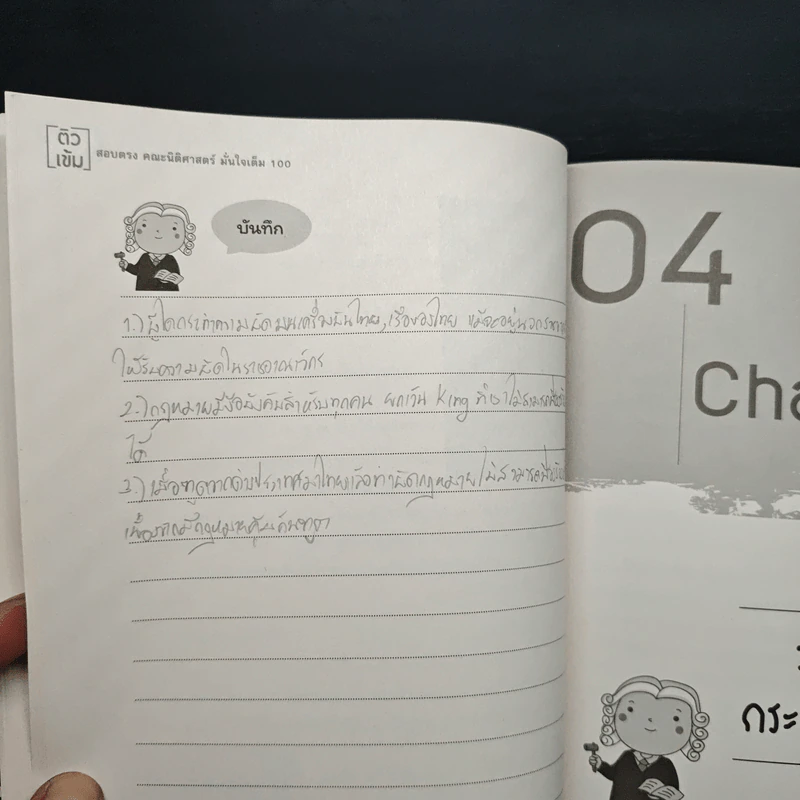 ติว
เข้ม
สอบตรง คณะนิติศาสตร์ มั่นใจเต็ม 100
บันทึก
1.) ผู้ใดกระทำความผิดบนเครื่องบินไทย, เรือของไทย แม้จะอยู่นอกราชอาณา
ให้รับความผิดในราชอาณาจักร
2.) กฎหมายมีข้อบังคับสำหรับทุกคน ยกเว้น King ที่เราไม่สามารถ
ได้
3.) เมื่อทูตจากต่างประเทศมาไทยแล้วทำผิดกฎหมาย ไม่สามารถ
เนื่องจากมีกฎหมายคุ้มกันทูต
04
Cha
กระ